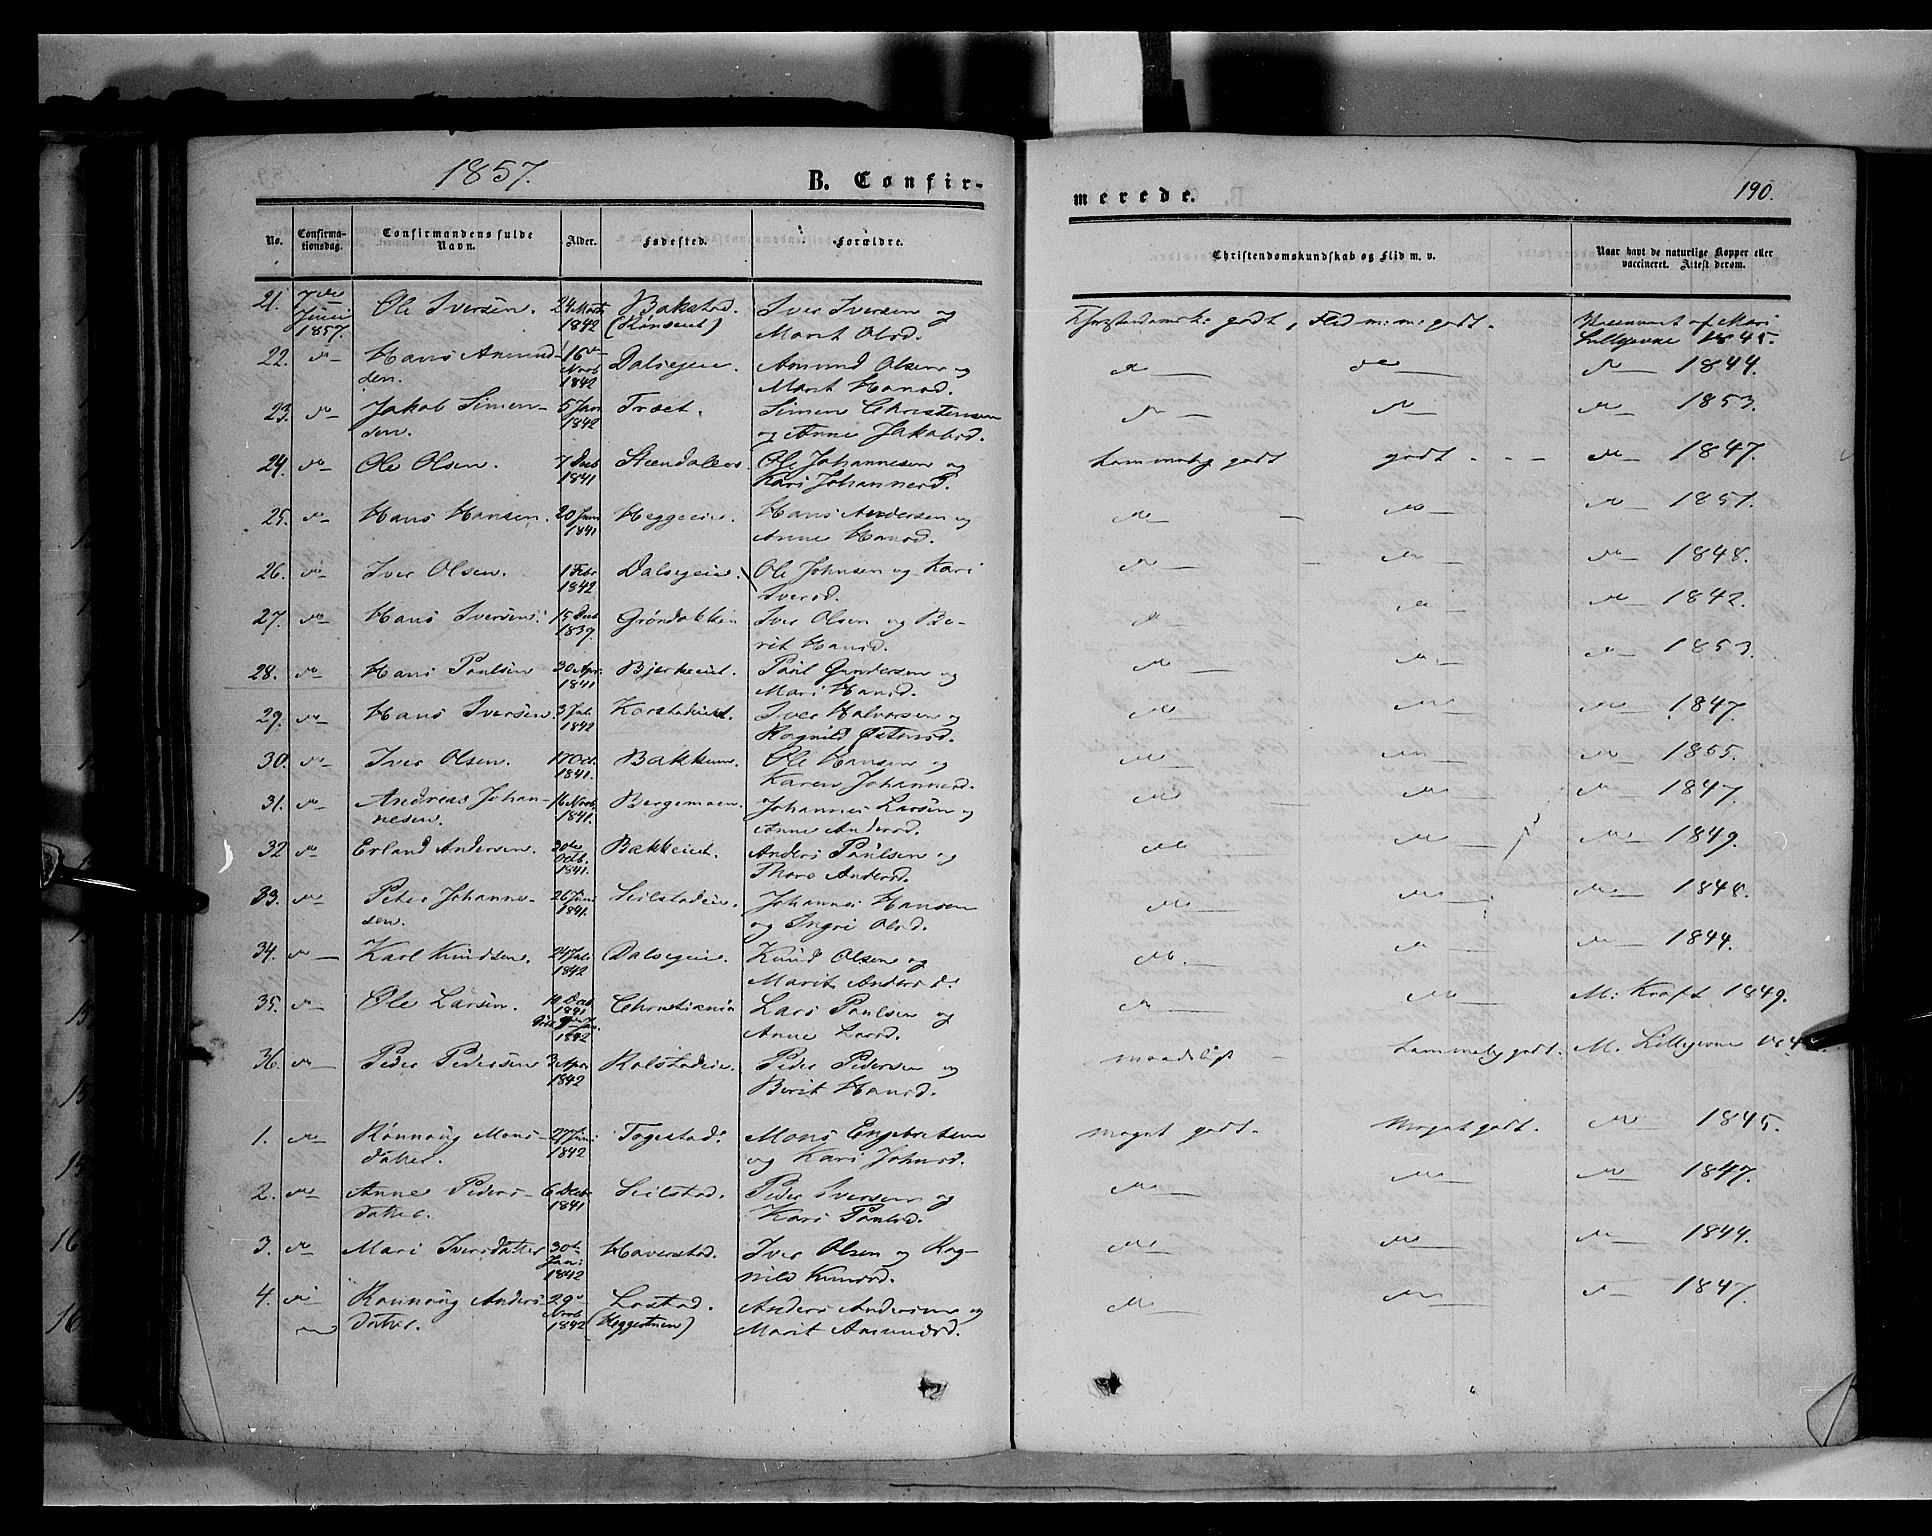 1857.
B. Confir-
merede.
190.
No.
Confirma-
tionsdag.
Confirmandens fulde
Navn.
Alder.
Fødested.
Forældre.
Christendomskundskab og Flid m. v.
Naar havt de naturlige Kopper eller
vaccineret. Attest derom.
21. 7de Ole Iversen. 24 Marts Bakstad. Iver Iversen og godt, Flid godt. af Mari
Juni 1857. 1842 Marit Olsd. 1845.
22. do Hans Amund- 16de Dalsegeie. Amund Olsen og do do do 1844.
sen. Novb 1842 Marit Hansd.
23. do Jakob Simen- 5 Jan Træet. Simen Christensen do do do 1853.
sen. 1842 og Anne Jakobsd.
24. do Ole Olsen. 7 Decb Ole Johannesen og temmelig godt godt do 1847.
1841 Kari Johannesd.
25. do Hans Hansen. 20 Juni Heggeeie. Hans Andersen og do do do 1851.
1841 Anne Hansd.
26. do Iver Olsen. 1 Febr Dalsegeie. Ole Johnsen og Kari do do do 1848.
1842 Iversd.
27. do Hans Iversen. 15 Decb Iver Olsen og Be- do do do 1842.
1839. rit Hansd.
28. do Hans Paulsen 30 Apr. Bjerkeeiet. Paul Gundersen og do do do 1853.
1841 Mari Hansd.
29. do Hans Iversen. 3 Iver Halvorsen og do do do 1847.
1842 Ragnild
30. do Iver Olsen. 17 Oct. Bakken. Ole Hansen og do do do 1855.
1841. Karen Johannesd.
31. do Andreas Johan- 16 Novb. Bergemoen. Johannes Larsen og do do do 1847.
nesen. 1841. Anne Andersd.
32 do Erland Andersen. 30te Bakkeeiet. Anders Paulsen og do do do 1849.
Octb. 1841. Thore Andersd.
33. do Peter Johanne- 26 Juni Seilstadeie. Johannes Hansen do do do 1848.
sen. 1841. og Ingri Olsd.
34. do Karl Knudsen. 24 Dalsegeie. Knud Olsen og do do do 1844.
1842 Marit Andersd.
35. do Ole Larsen. 10 Decb Christiania Lars Paulsen og do do M. Kraft 1849.
1841 1842 Anne Larsd.
36. do Peder Pedersen 3 Apr Kolstadeie. Peder Pedersen og maadeligt temmelig godt. M. Lillegjerne
1842 Berit Hansd.
1. do Rønnaug Mons- 27 Juni Togestad. Mons Engebretsen meget godt. Meget godt. do 1845.
datter. 1842 og Kari Johnsd.
2. do Anne Peders- 6 Decb Seilstad. Peder Iversen og do do do 1847.
datter. 1841 Kari Paulsd.
3. do Mari Iversdatter 30te Haverstad. Iver Olsen og Rag- do do do 1844.
Jan: 1842 nild Knudsd.
4. do Rønnaug Anders- 29de Lostad. Anders Andersen og do do do 1847.
datter. Novb 1842 Marit Amundsd.